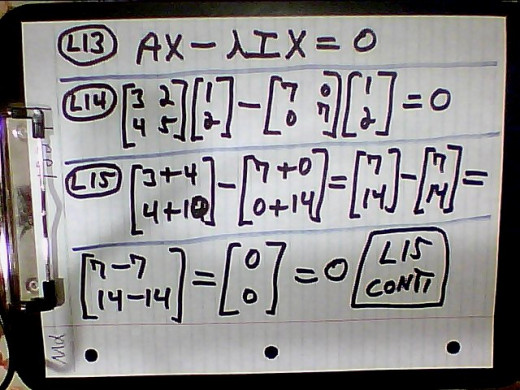 L13 AX - λIX = 0
L14 [3 2; 4 5][1; 2] - [7 0; 0 7][1; 2] = 0
L15 [3+4; 4+10] - [7+0; 0+14] = [7; 14] - [7; 14] =
[7-7; 14-14] = [0; 0] = 0 L15 CONTI